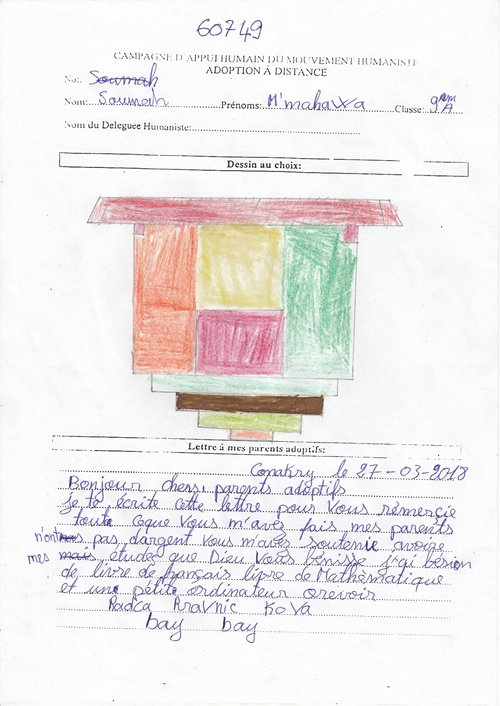 60749
CAMPAGNE D'APPUI HUMAIN DU MOUVEMENT HUMANISTE
ADOPTION À DISTANCE
No:. Soumah
Nom: Soumah Prénoms: M'mahawa Classe: 9em A
Nom du Deleguee Humaniste:
Dessin au choix:
Lettre à mes parents adoptifs:
Conakry le 27-03-2018
Bonjour chers parents adoptifs
je te écrite cette lettre pour vous remercie
toute ceque vous m'avez fais mes parents
n'ont pas d'argent vous m'avez soutenie avoue
mes mais etudes que Dieu vous bénisse j'ai besion
de livre de français livre de Mathématique
et une petite ordinateur orevoir
Radca Bravnic Kova
bay bay